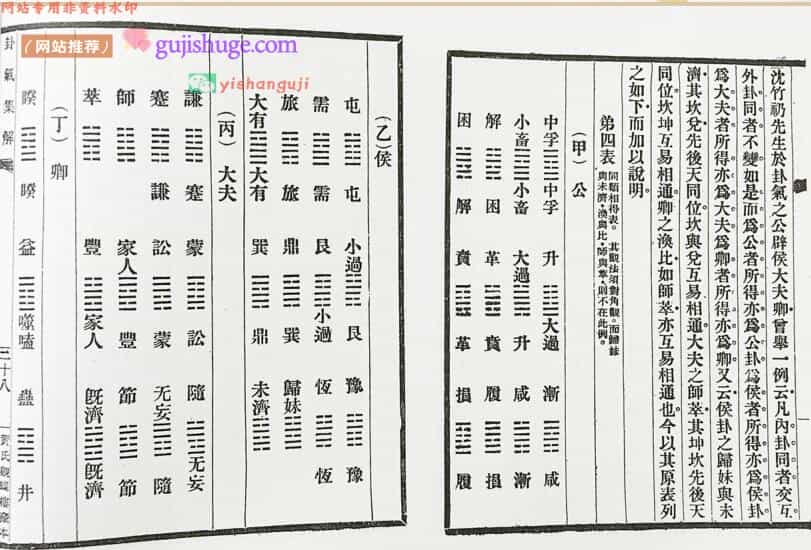 网站专用非资料水印
(网站推荐)
gujishuge.com
yishanguji
沈竹礽先生於卦氣之公辟侯大夫卿曾舉一例云凡內卦同者交互
外卦同者不變如是而爲公者所得亦爲公卦爲侯者所得亦爲侯卦
爲大夫者所得亦爲大夫爲卿者所得亦爲卿又云侯卦之歸妹與未
濟其坎兌先後天同位坎與兌互易相通大夫之師萃其坤坎先後天
同位坎坤互易相通卿之渙比如師萃亦互易相通也今以其原表列
之如下而加以說明
第四表 同類相得表。其觀法須對角觀。而歸妹
與未濟。渙與比。師與萃。則不在此例。
(甲)公
中孚 中孚 升 大過 漸 咸
小畜 小畜 大過 升 咸 漸
解 困 革 賁 履 損
困 解 賁 革 損 履
(乙)侯
屯 屯 小過 艮 豫 豫
需 需 艮 小過 恆 恆
旅 旅 鼎 巽 歸妹
大有 大有 巽 鼎 未濟
(丙)大夫
謙 蹇 蒙 訟 隨 无妄
蹇 謙 訟 蒙 无妄 隨
師 家人 豐 節 節
萃 豐 家人 旣濟 旣濟
(丁)卿
睽 睽 益 噬嗑 蠱 井
卦氣集解
三十八